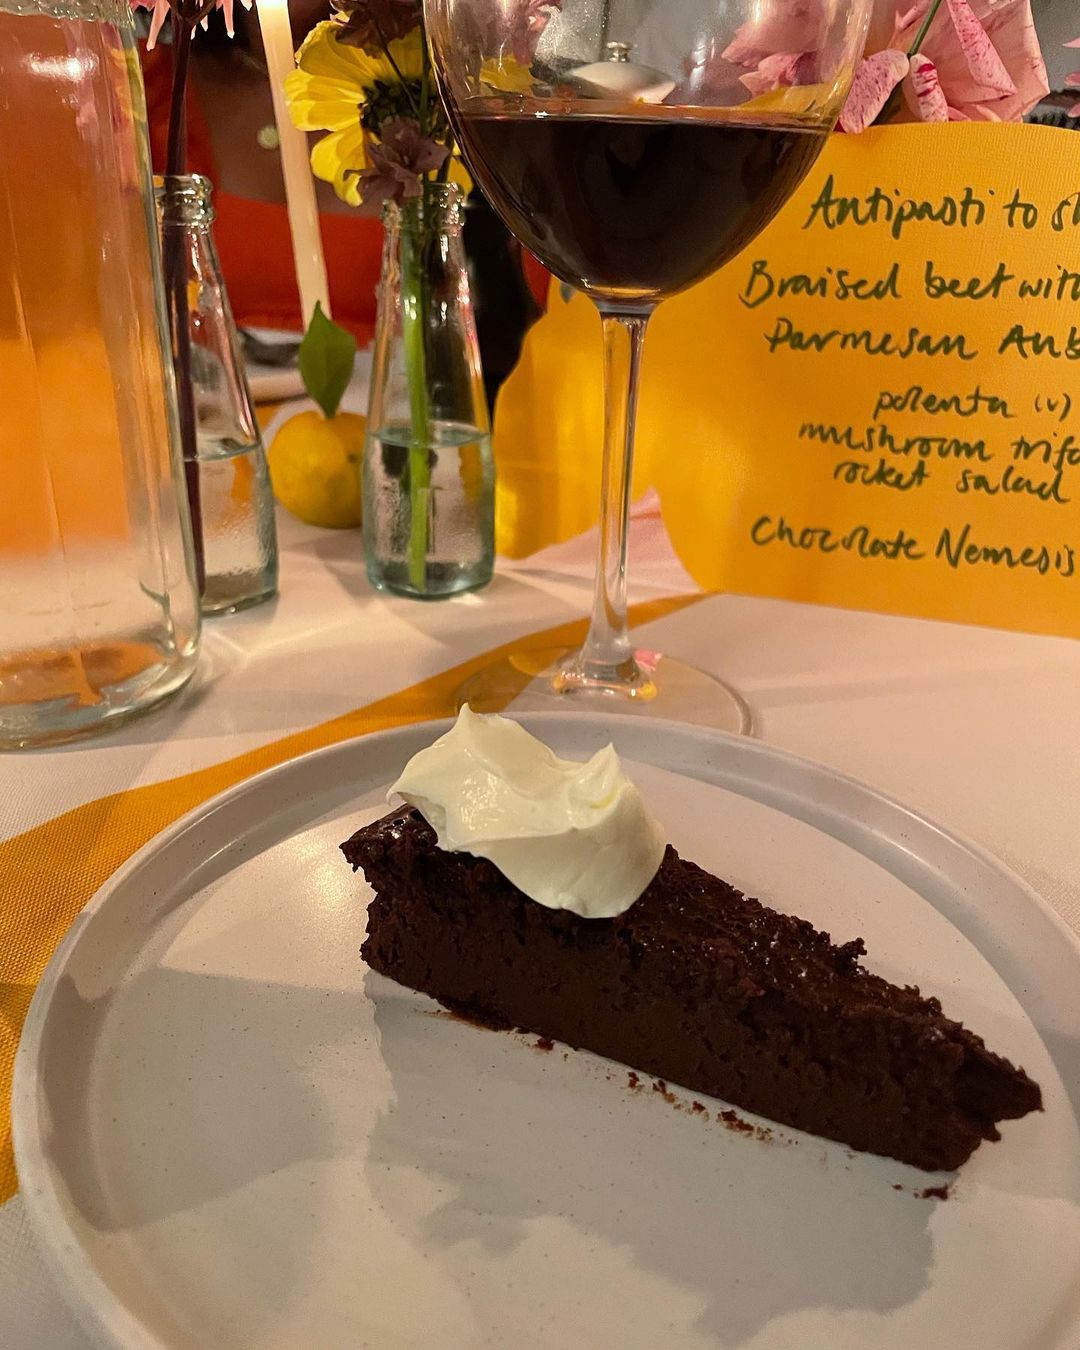 Antipasti to
Braised beef with
Parmesan
polenta (v)
mushroom
rocket salad
Chocolate Nemesis